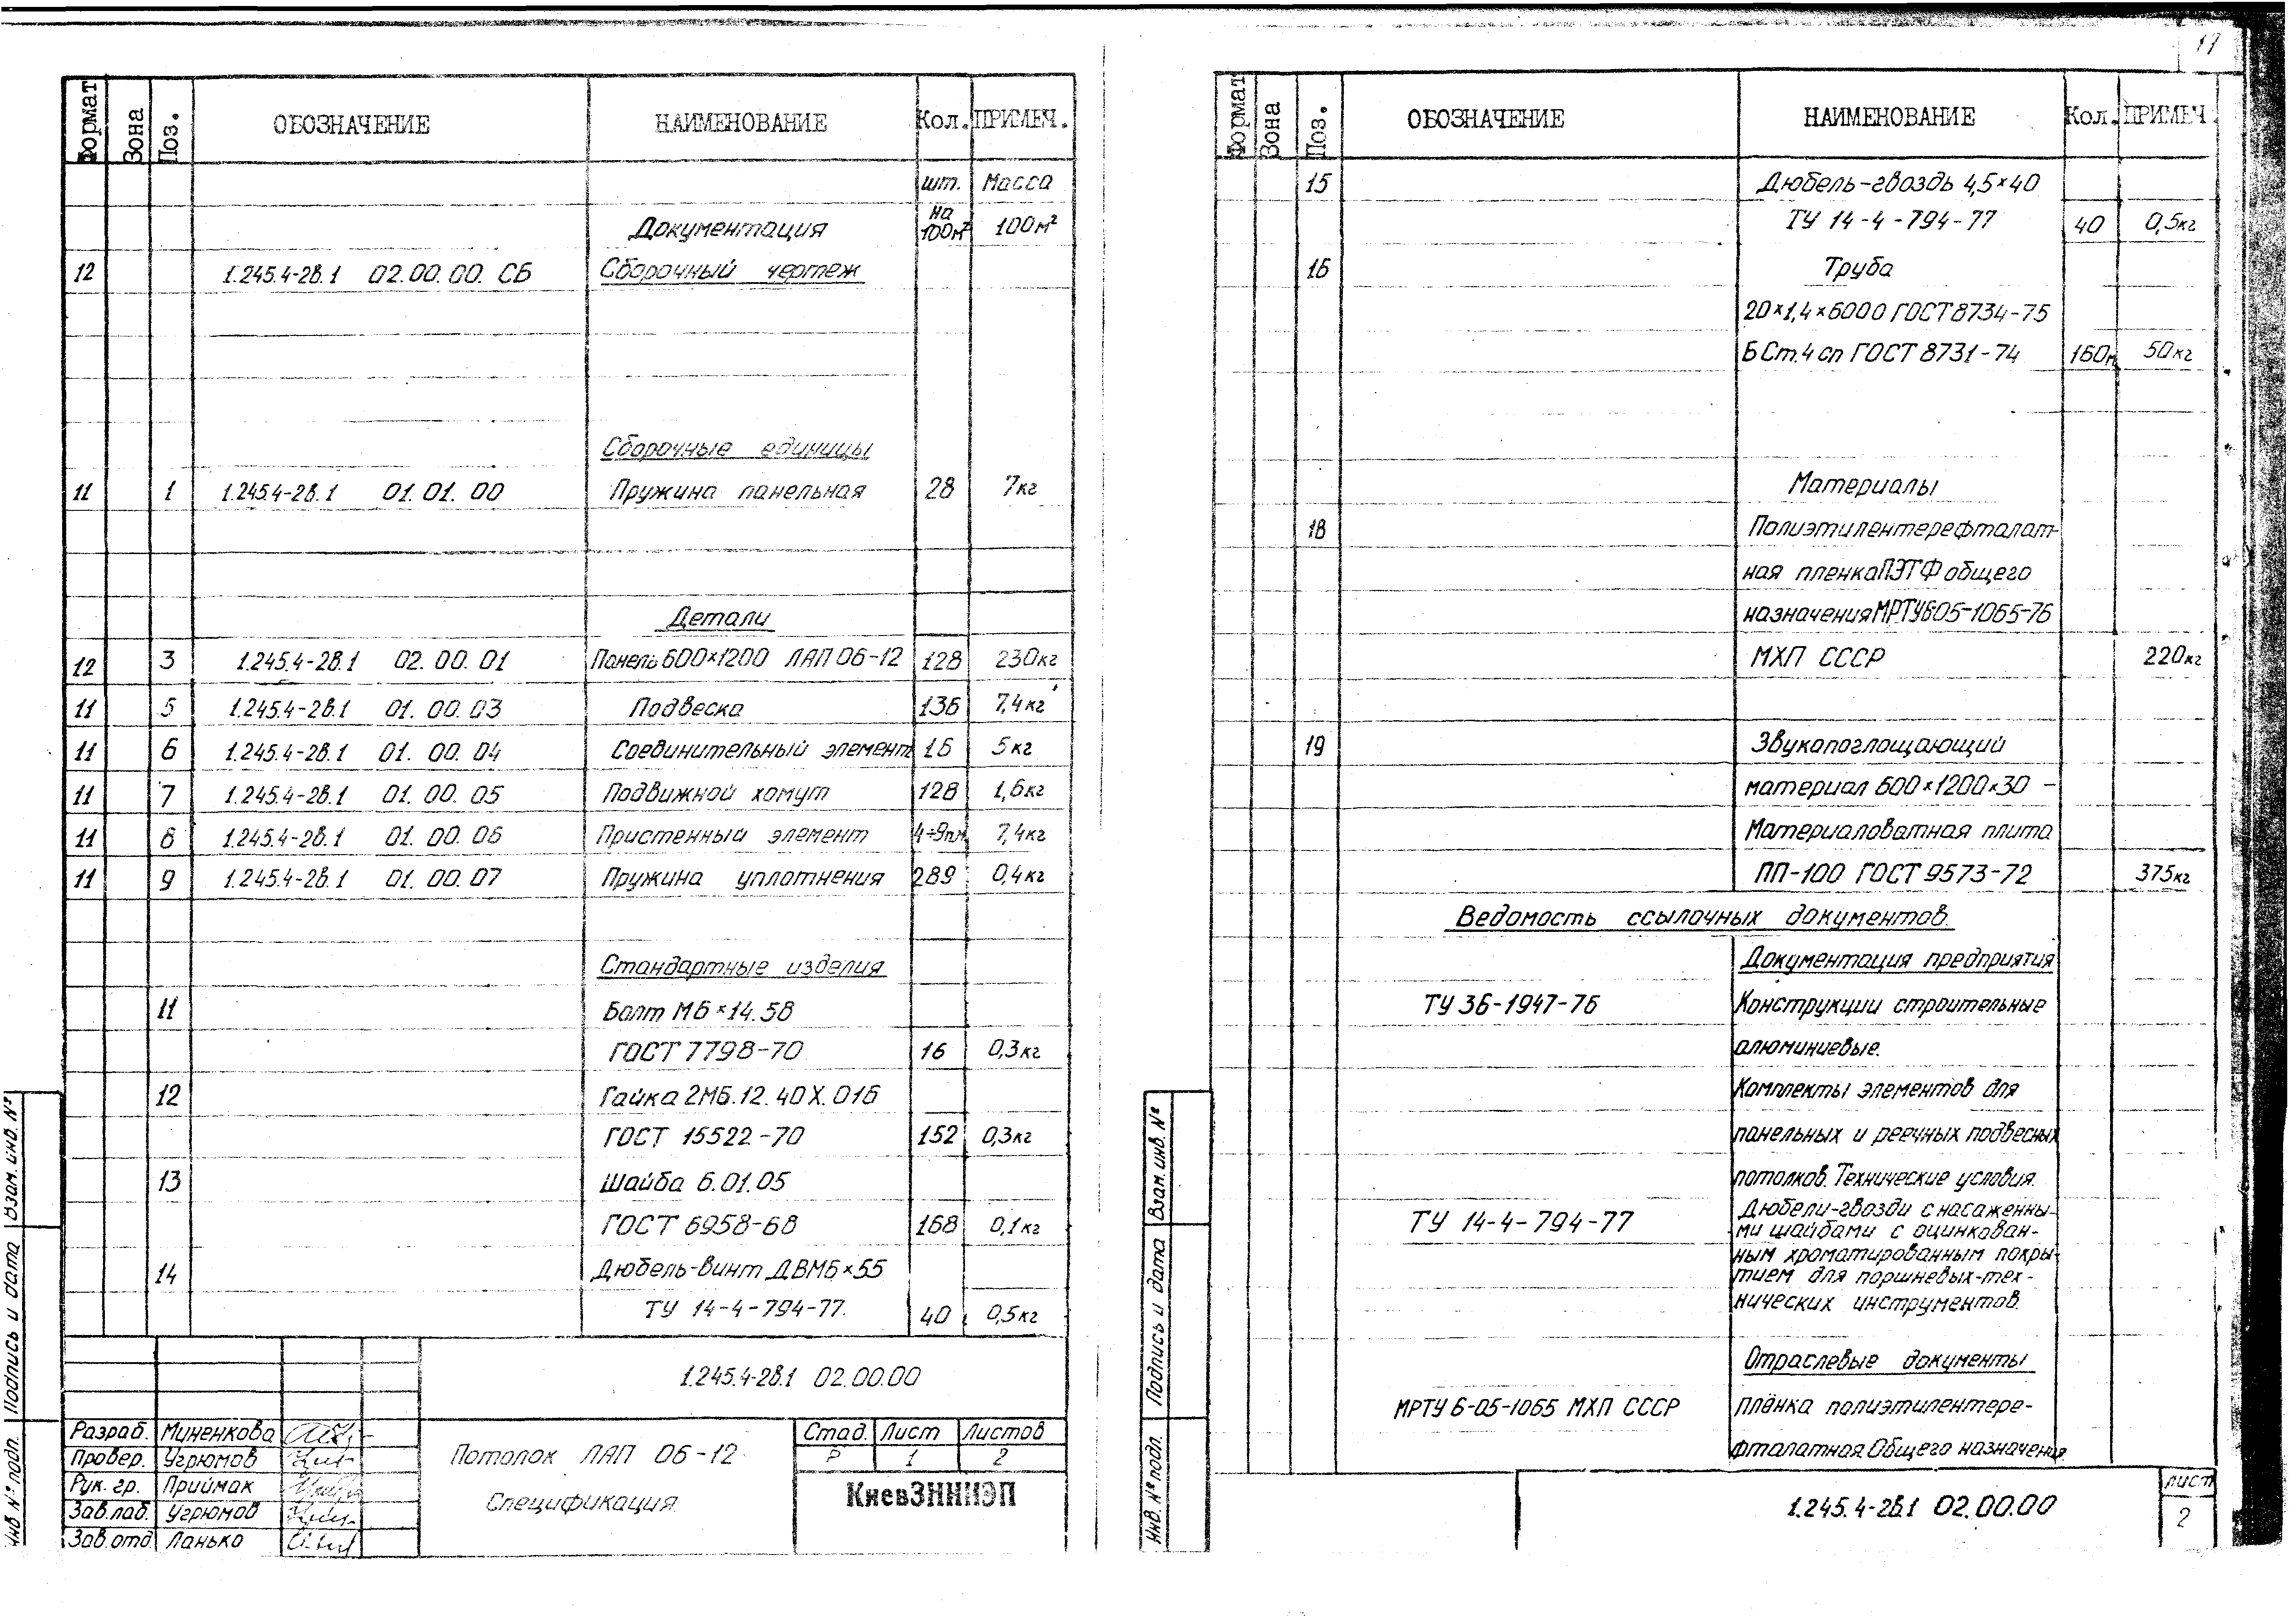 17
Формат Зона Поз. ОБОЗНАЧЕНИЕ НАИМЕНОВАНИЕ Кол. ПРИМЕЧ.
шт. Масса
Документация на 100м² 100м²
12 1.245.4-2в.1 02.00.00. СБ Сборочный чертеж
Сборочные единицы
11 1 1.245.4-2в.1 01.01.00 Пружина панельная 28 7кг
Детали
12 3 1.245.4-2в.1 02.00.01 Панель 600×1200 ЛАП 06-12 128 230кг
11 5 1.245.4-2в.1 01.00.03 Подвеска 136 7,4кг
11 6 1.245.4-2в.1 01.00.04 Соединительный элемент 16 5кг
11 7 1.245.4-2в.1 01.00.05 Подвижной хомут 128 1,6кг
11 8 1.245.4-2в.1 01.00.06 Пристенный элемент 4÷9пм 7,4кг
11 9 1.245.4-2в.1 01.00.07 Пружина уплотнения 289 0,4кг
Стандартные изделия
11 Болт М6×14.58
ГОСТ 7798-70 16 0,3кг
12 Гайка 2М6.12.40Х.016
ГОСТ 15522-70 152 0,3кг
13 Шайба 6.01.05
ГОСТ 6958-68 168 0,1кг
14 Дюбель-винт ДВМ6×55
ТУ 14-4-794-77. 40 0,5кг
1.245.4-2в.1 02.00.00
Разраб. Миненкова
Провер. Угрюмов
Рук. гр. Приймак
Зав.лаб. Угрюмов
Зав.отд Ланько
Потолок ЛАП 06-12
Спецификация
Стад. Лист Листов
Р 1 2
КиевЗНИИЭП
Инв № подл. Подпись и дата Взам. инв. №
Формат Зона Поз. ОБОЗНАЧЕНИЕ НАИМЕНОВАНИЕ Кол. ПРИМЕЧ.
15 Дюбель-гвоздь 4,5×40
ТУ 14-4-794-77 40 0,5кг
16 Труба
20×1,4×6000 ГОСТ 8734-75
Б Ст.4 сп ГОСТ 8731-74 160м 50кг
Материалы
18 Полиэтилентерефталат-
ная пленка ПЭТФ общего
назначения МРТУ605-1065-76
МХП СССР 220кг
19 Звукопоглощающий
материал 600×1200×30 -
Материаловатная плита
ПП-100 ГОСТ 9573-72 375кг
Ведомость ссылочных документов.
Документация предприятия
ТУ 36-1947-76 Конструкции строительные
алюминиевые.
Комплекты элементов для
панельных и реечных подвесных
потолков. Технические условия.
ТУ 14-4-794-77 Дюбели-гвозди с насаженны-
ми шайбами с оцинкован-
ным хроматированным покры-
тием для поршневых-тех-
нических инструментов.
Отраслевые документы
МРТУ 6-05-1065 МХП СССР Плёнка полиэтилентере-
фталатная. Общего назначения
1.245.4-2в.1 02.00.00
лист
2
Инв. № подл. Подпись и дата Взам. инв. №